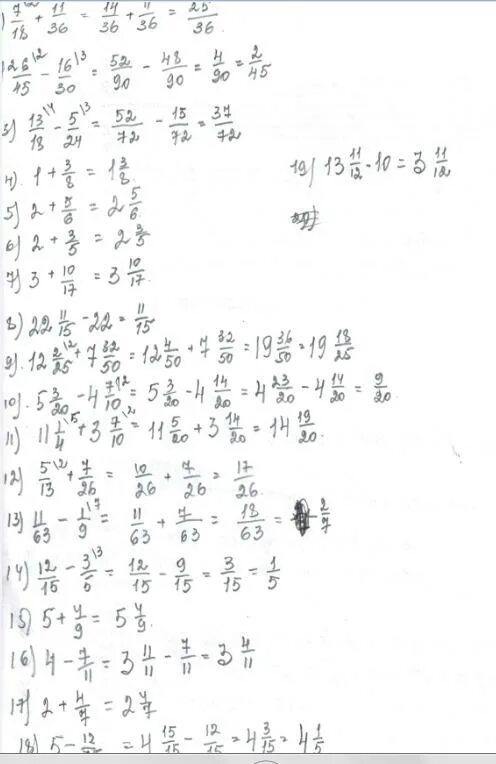 ) 7/18 \2 + 11/36 = 14/36 + 11/36 = 25/36.
) 26/45 \2 - 16/30 \3 = 52/90 - 48/90 = 4/90 = 2/45
3) 13/18 \4 - 5/24 \3 = 52/72 - 15/72 = 37/72
4) 1 + 3/8 = 1 3/8.
19) 13 11/12 - 10 = 3 11/12
5) 2 + 5/6 = 2 5/6.
6) 2 + 3/5 = 2 3/5
7) 3 + 10/17 = 3 10/17.
8) 22 11/15 - 22 = 11/15
9) 12 2/25 \2 + 7 32/50 = 12 4/50 + 7 32/50 = 19 36/50 = 19 18/25
10) 5 3/20 - 4 7/10 \2 = 5 3/20 - 4 14/20 = 4 23/20 - 4 14/20 = 9/20
11) 11 1/4 \5 + 3 7/10 \2 = 11 5/20 + 3 14/20 = 14 19/20.
12) 5/13 \2 + 7/26 = 10/26 + 7/26 = 17/26.
13) 11/63 - 1/9 \7 = 11/63 + 7/63 = 18/63 = 2/7
14) 12/15 - 3/5 \3 = 12/15 - 9/15 = 3/15 = 1/5
15) 5 + 4/9 = 5 4/9.
16) 4 - 7/11 = 3 11/11 - 7/11 = 3 4/11
17) 2 + 4/7 = 2 4/7
18) 5 - 12/ = 4 15/15 - 12/15 = 4 3/15 = 4 1/5